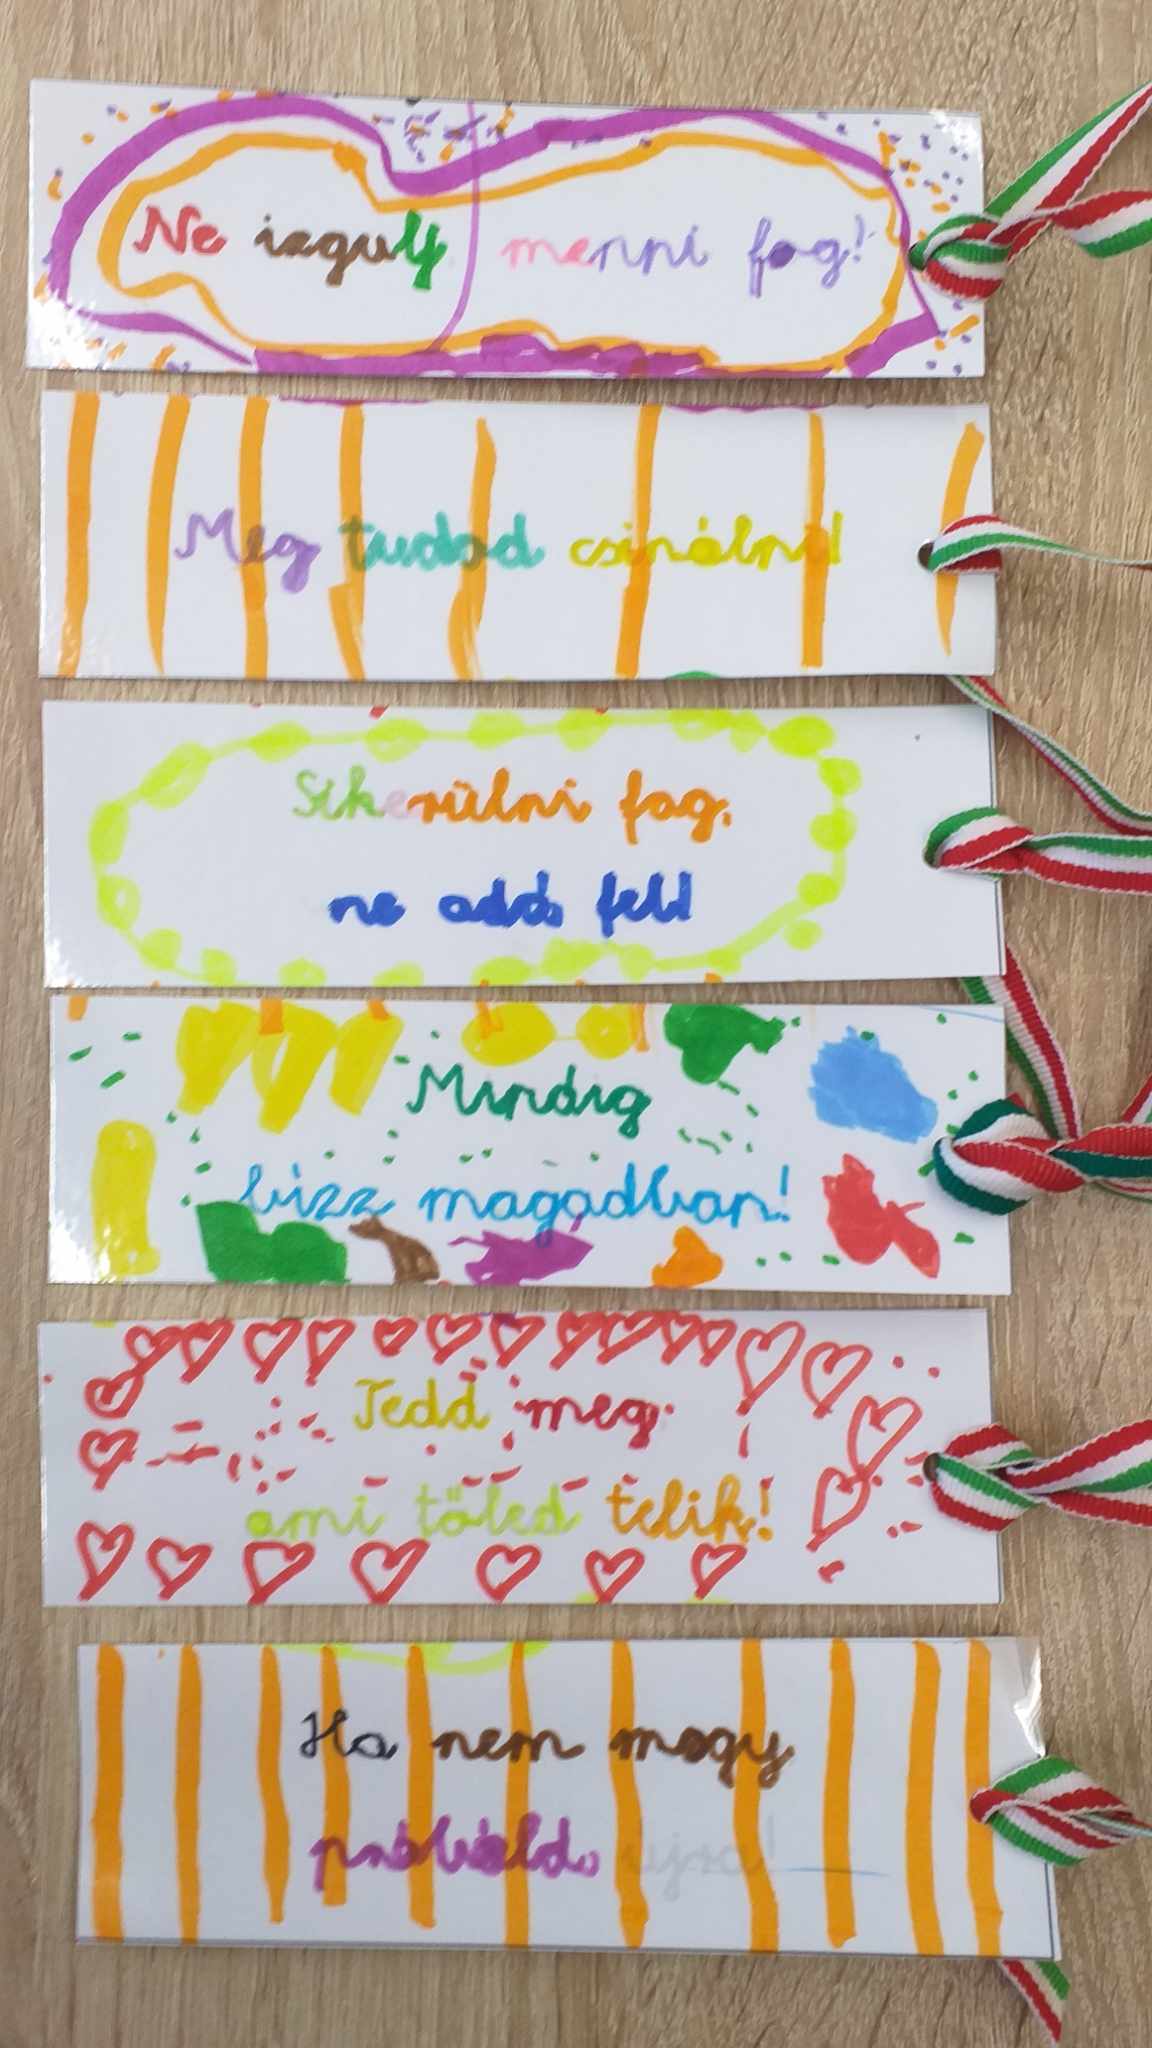 Ne izgulj menni fog!
Meg tudod csinálni!
Sikerülni fog,
ne add feld
Mindig
bízz magadban!
Tedd meg
ami tőled telik!
Ha nem megy
próbáld ujra!